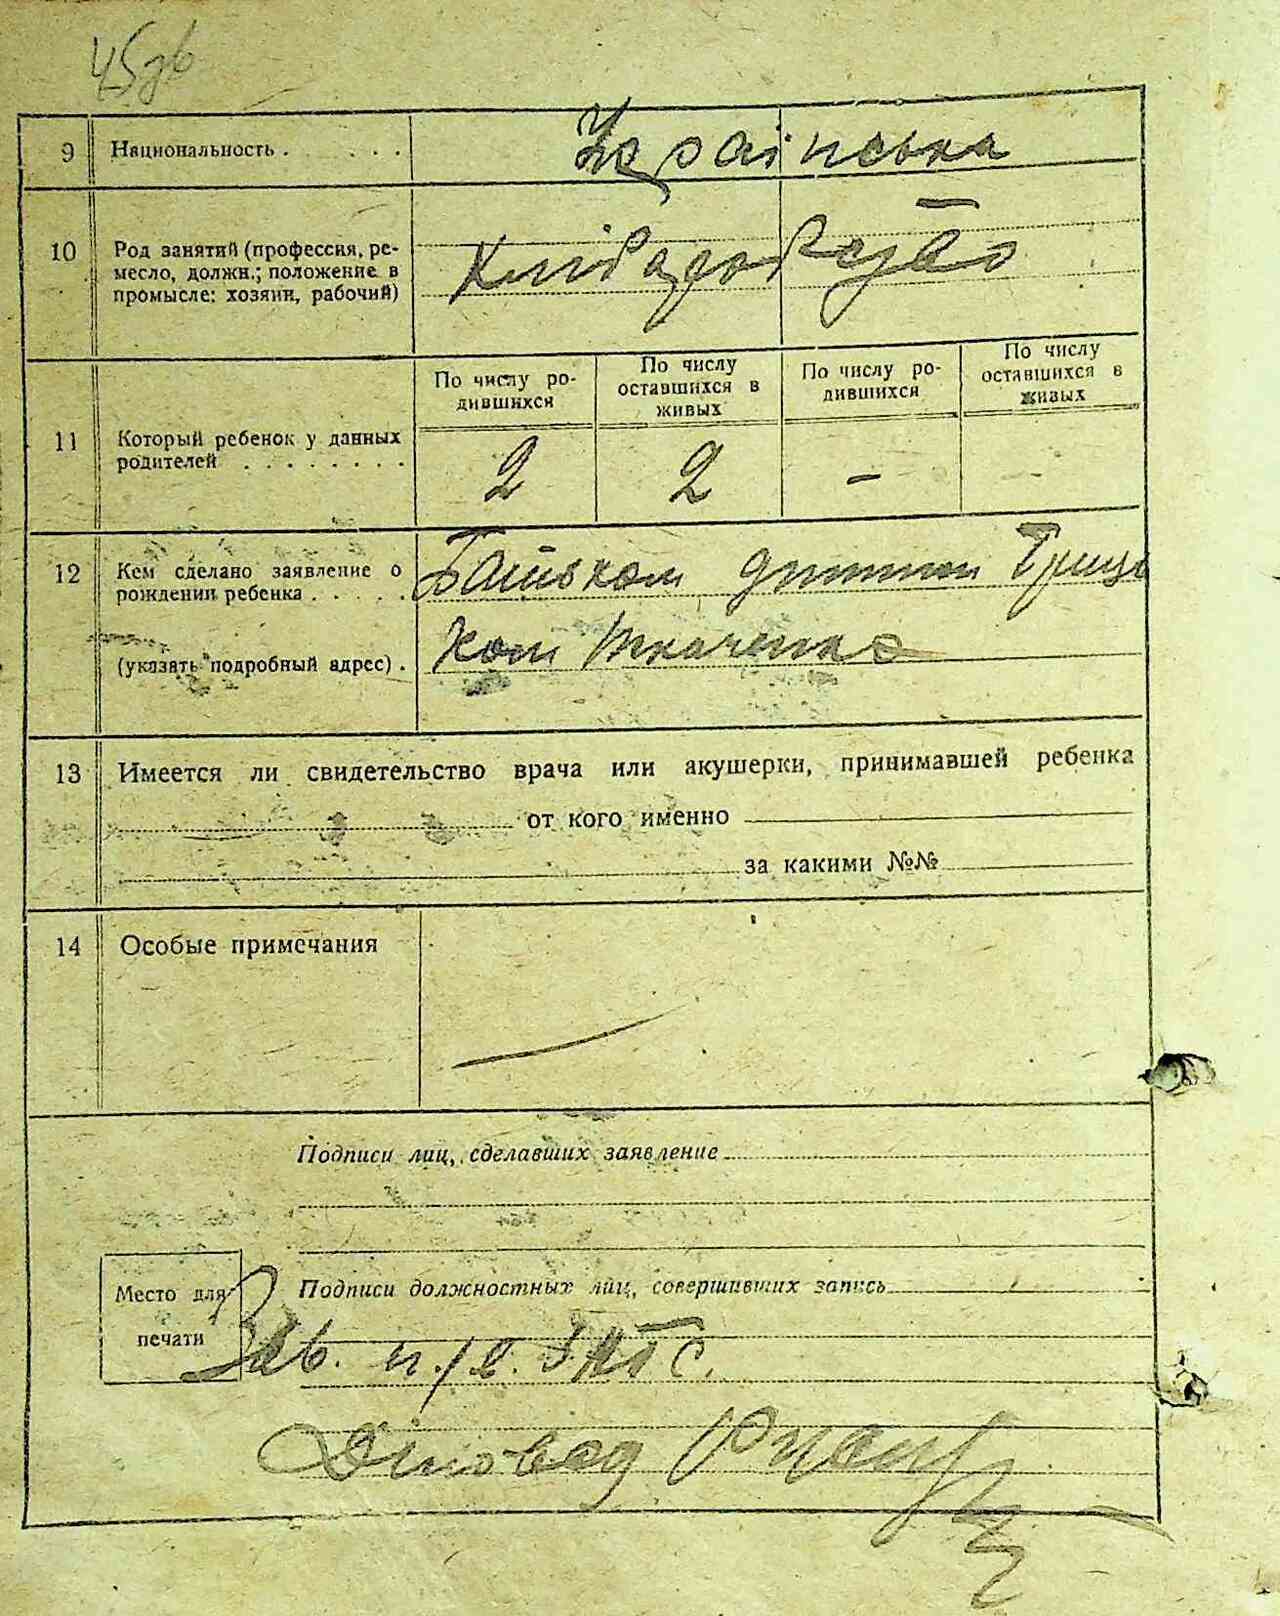 45зв
9 Национальность . . . . . Українська
10 Род занятий (профессия, ре-
месло, должн.; положение в
промысле: хозяин, рабочий)
Хліборобство
По числу ро-
дившихся
По числу
оставшихся в
живых
По числу ро-
дившихся
По числу
оставшихся в
живых
11 Который ребенок у данных
родителей . . . . . . . .
2 2 -
12 Кем сделано заявление о
рождении ребенка . . . . .
(указать подробный адрес) .
Батьком дитини Гриць
ком Ткаченко
13 Имеется ли свидетельство врача или акушерки, принимавшей ребенка
от кого именно
за какими №№
14 Особые примечания
Подписи лиц, сделавших заявление
Место для
печати
Подписи должностных лиц, совершивших запись
Зав. п/в. ЗАГС.
Діловод